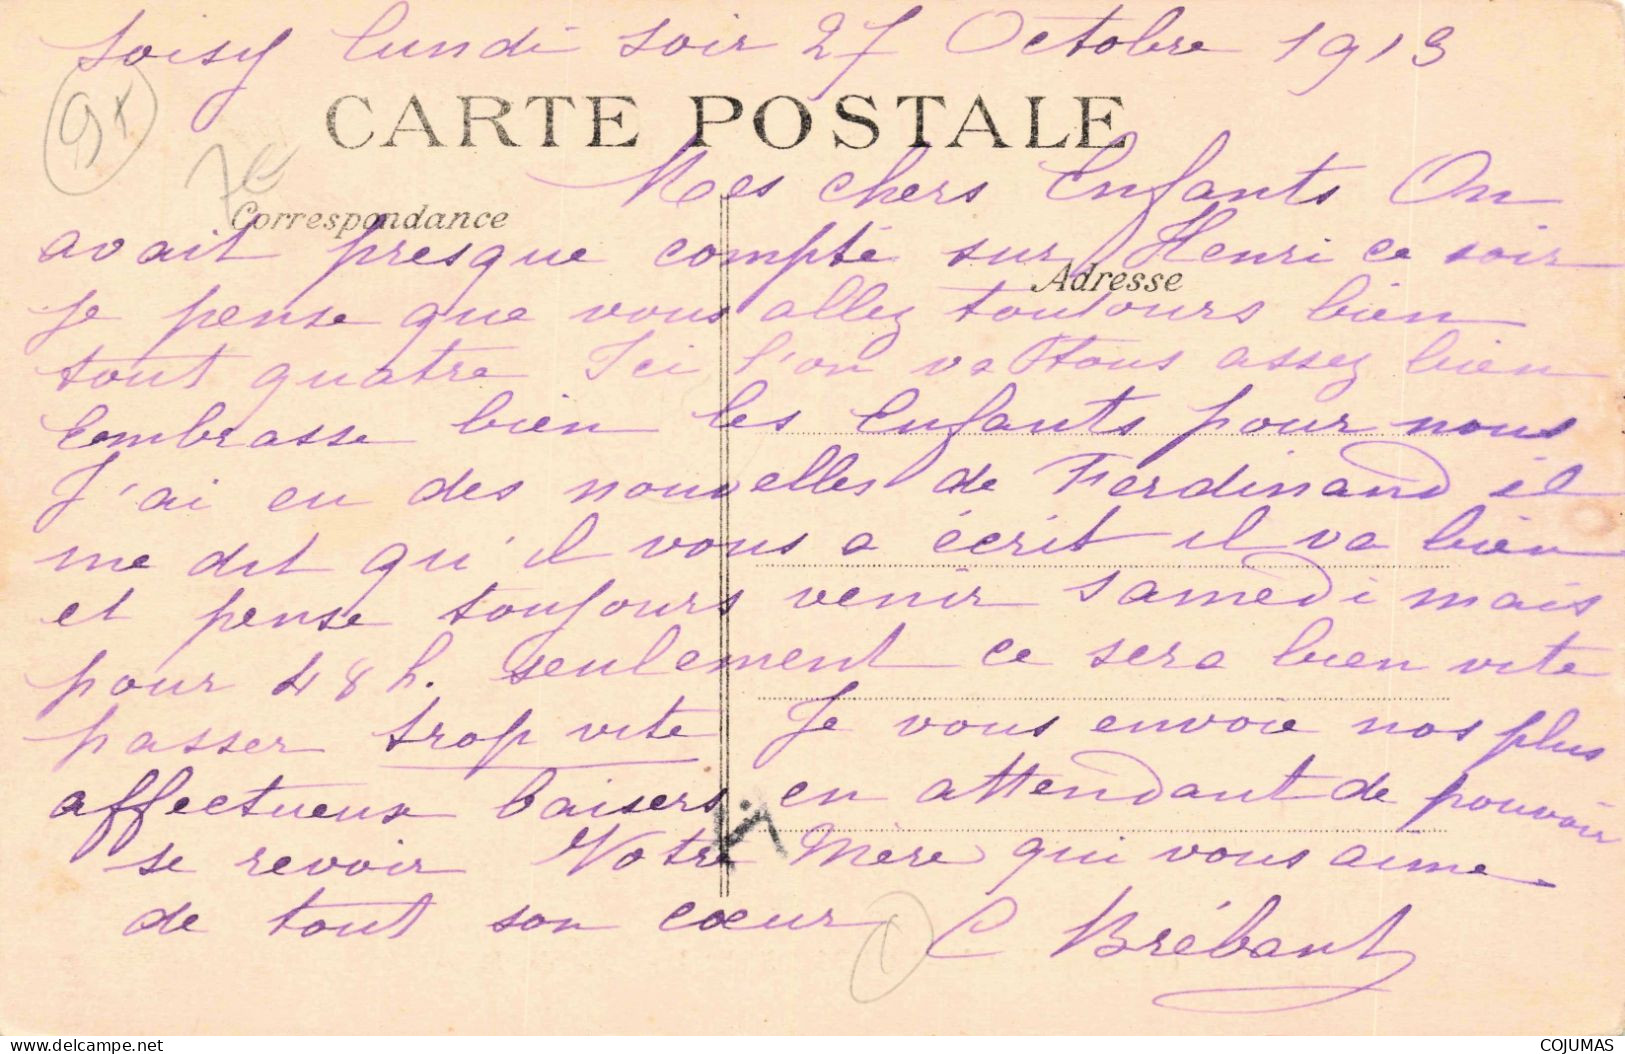 Soisy lundi soir 27 Octobre 1913
CARTE POSTALE
7€
Mes chers Enfants On
Correspondance
avait presque compté sur Henri ce soir
Adresse
je pense que vous allez toujours bien
tout quatre Ici l'on va tous assez bien
Embrasse bien les Enfants pour nous
J'ai eu des nouvelles de Ferdinand il
me dit qu'il vous a écrit il va bien
et pense toujours venir samedi mais
pour 48 h. seulement ce sera bien vite
passer trop vite Je vous envoie nos plus
affectueux baisers en attendant de pouvoir
se revoir Votre Mère qui vous aime
de tout son cœur C Brébant
COJUMAS